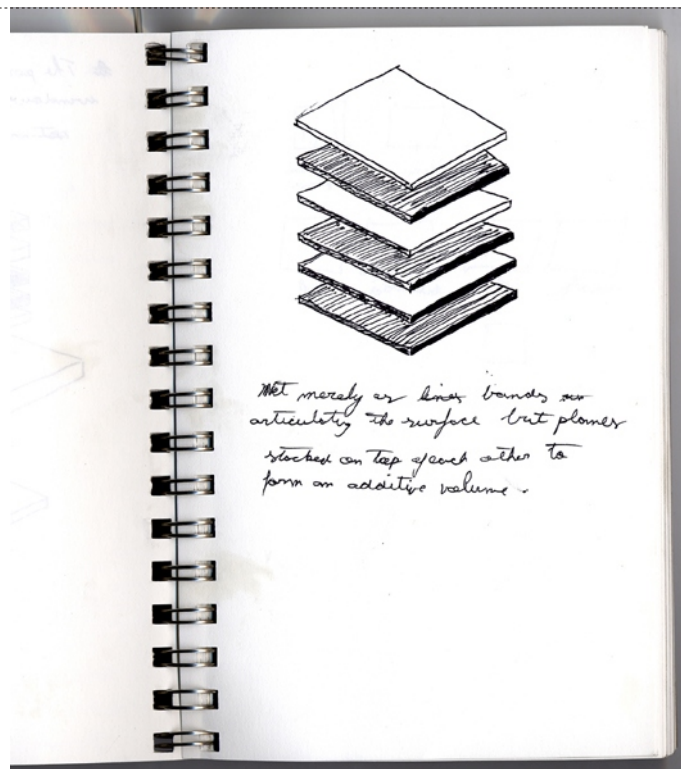 Not merely as lines bands
articulating the surface but planes
stacked on top of each other to
form an additive volume.
The